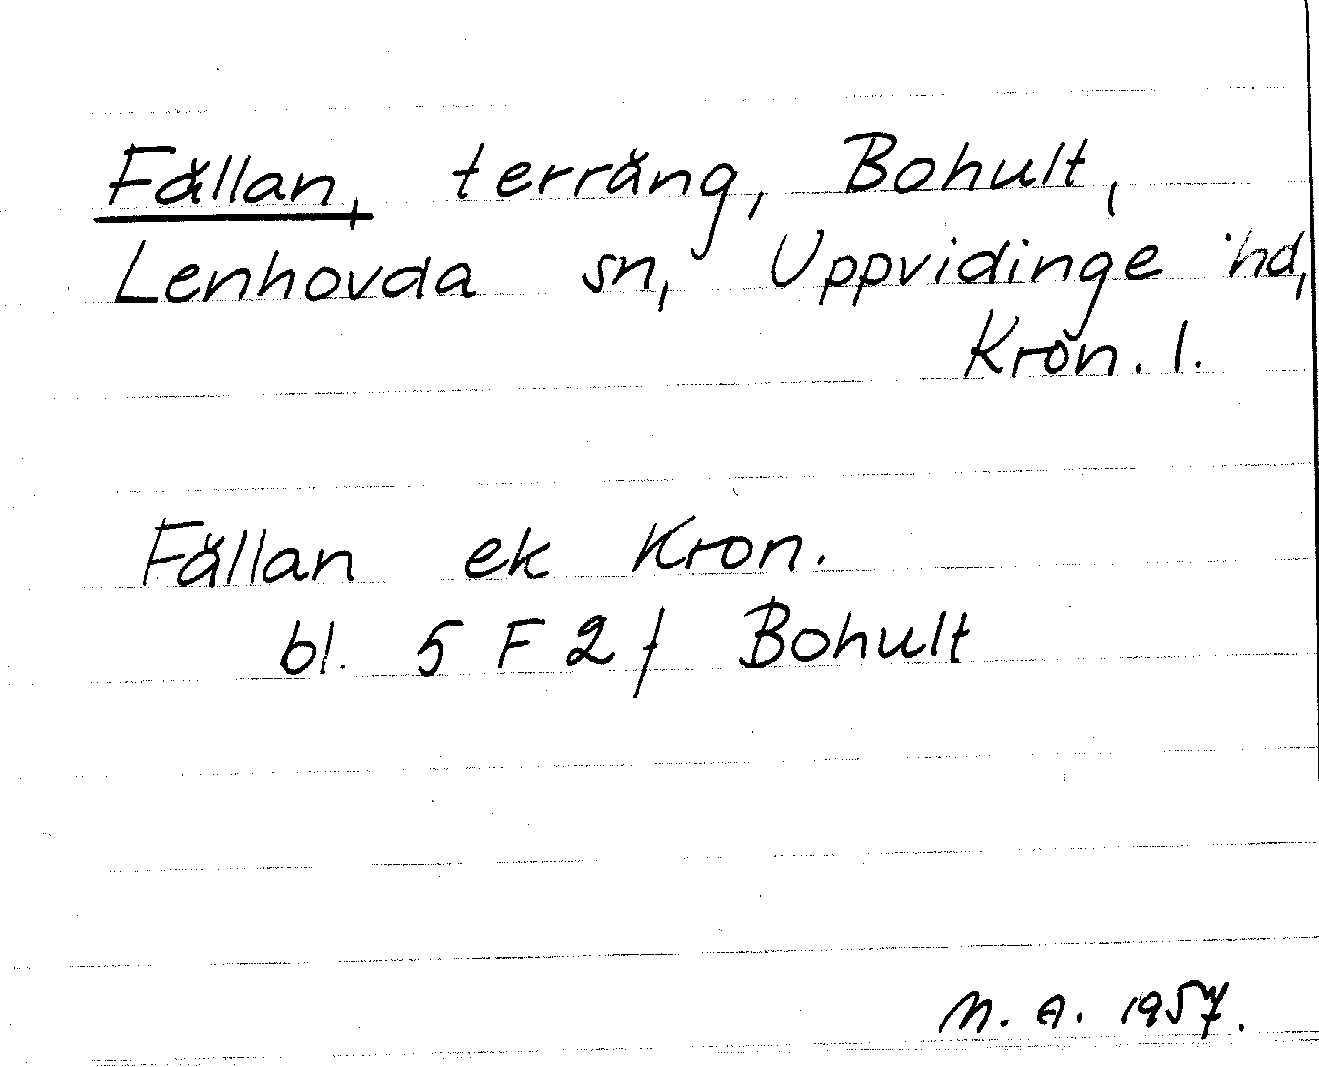 Fällan, terräng, Bohult,
Lenhovda sn, Uppvidinge hd,
Kron. l.
Fällan ek Kron.
bl. 5 F 2 f Bohult
M. A. 1957.